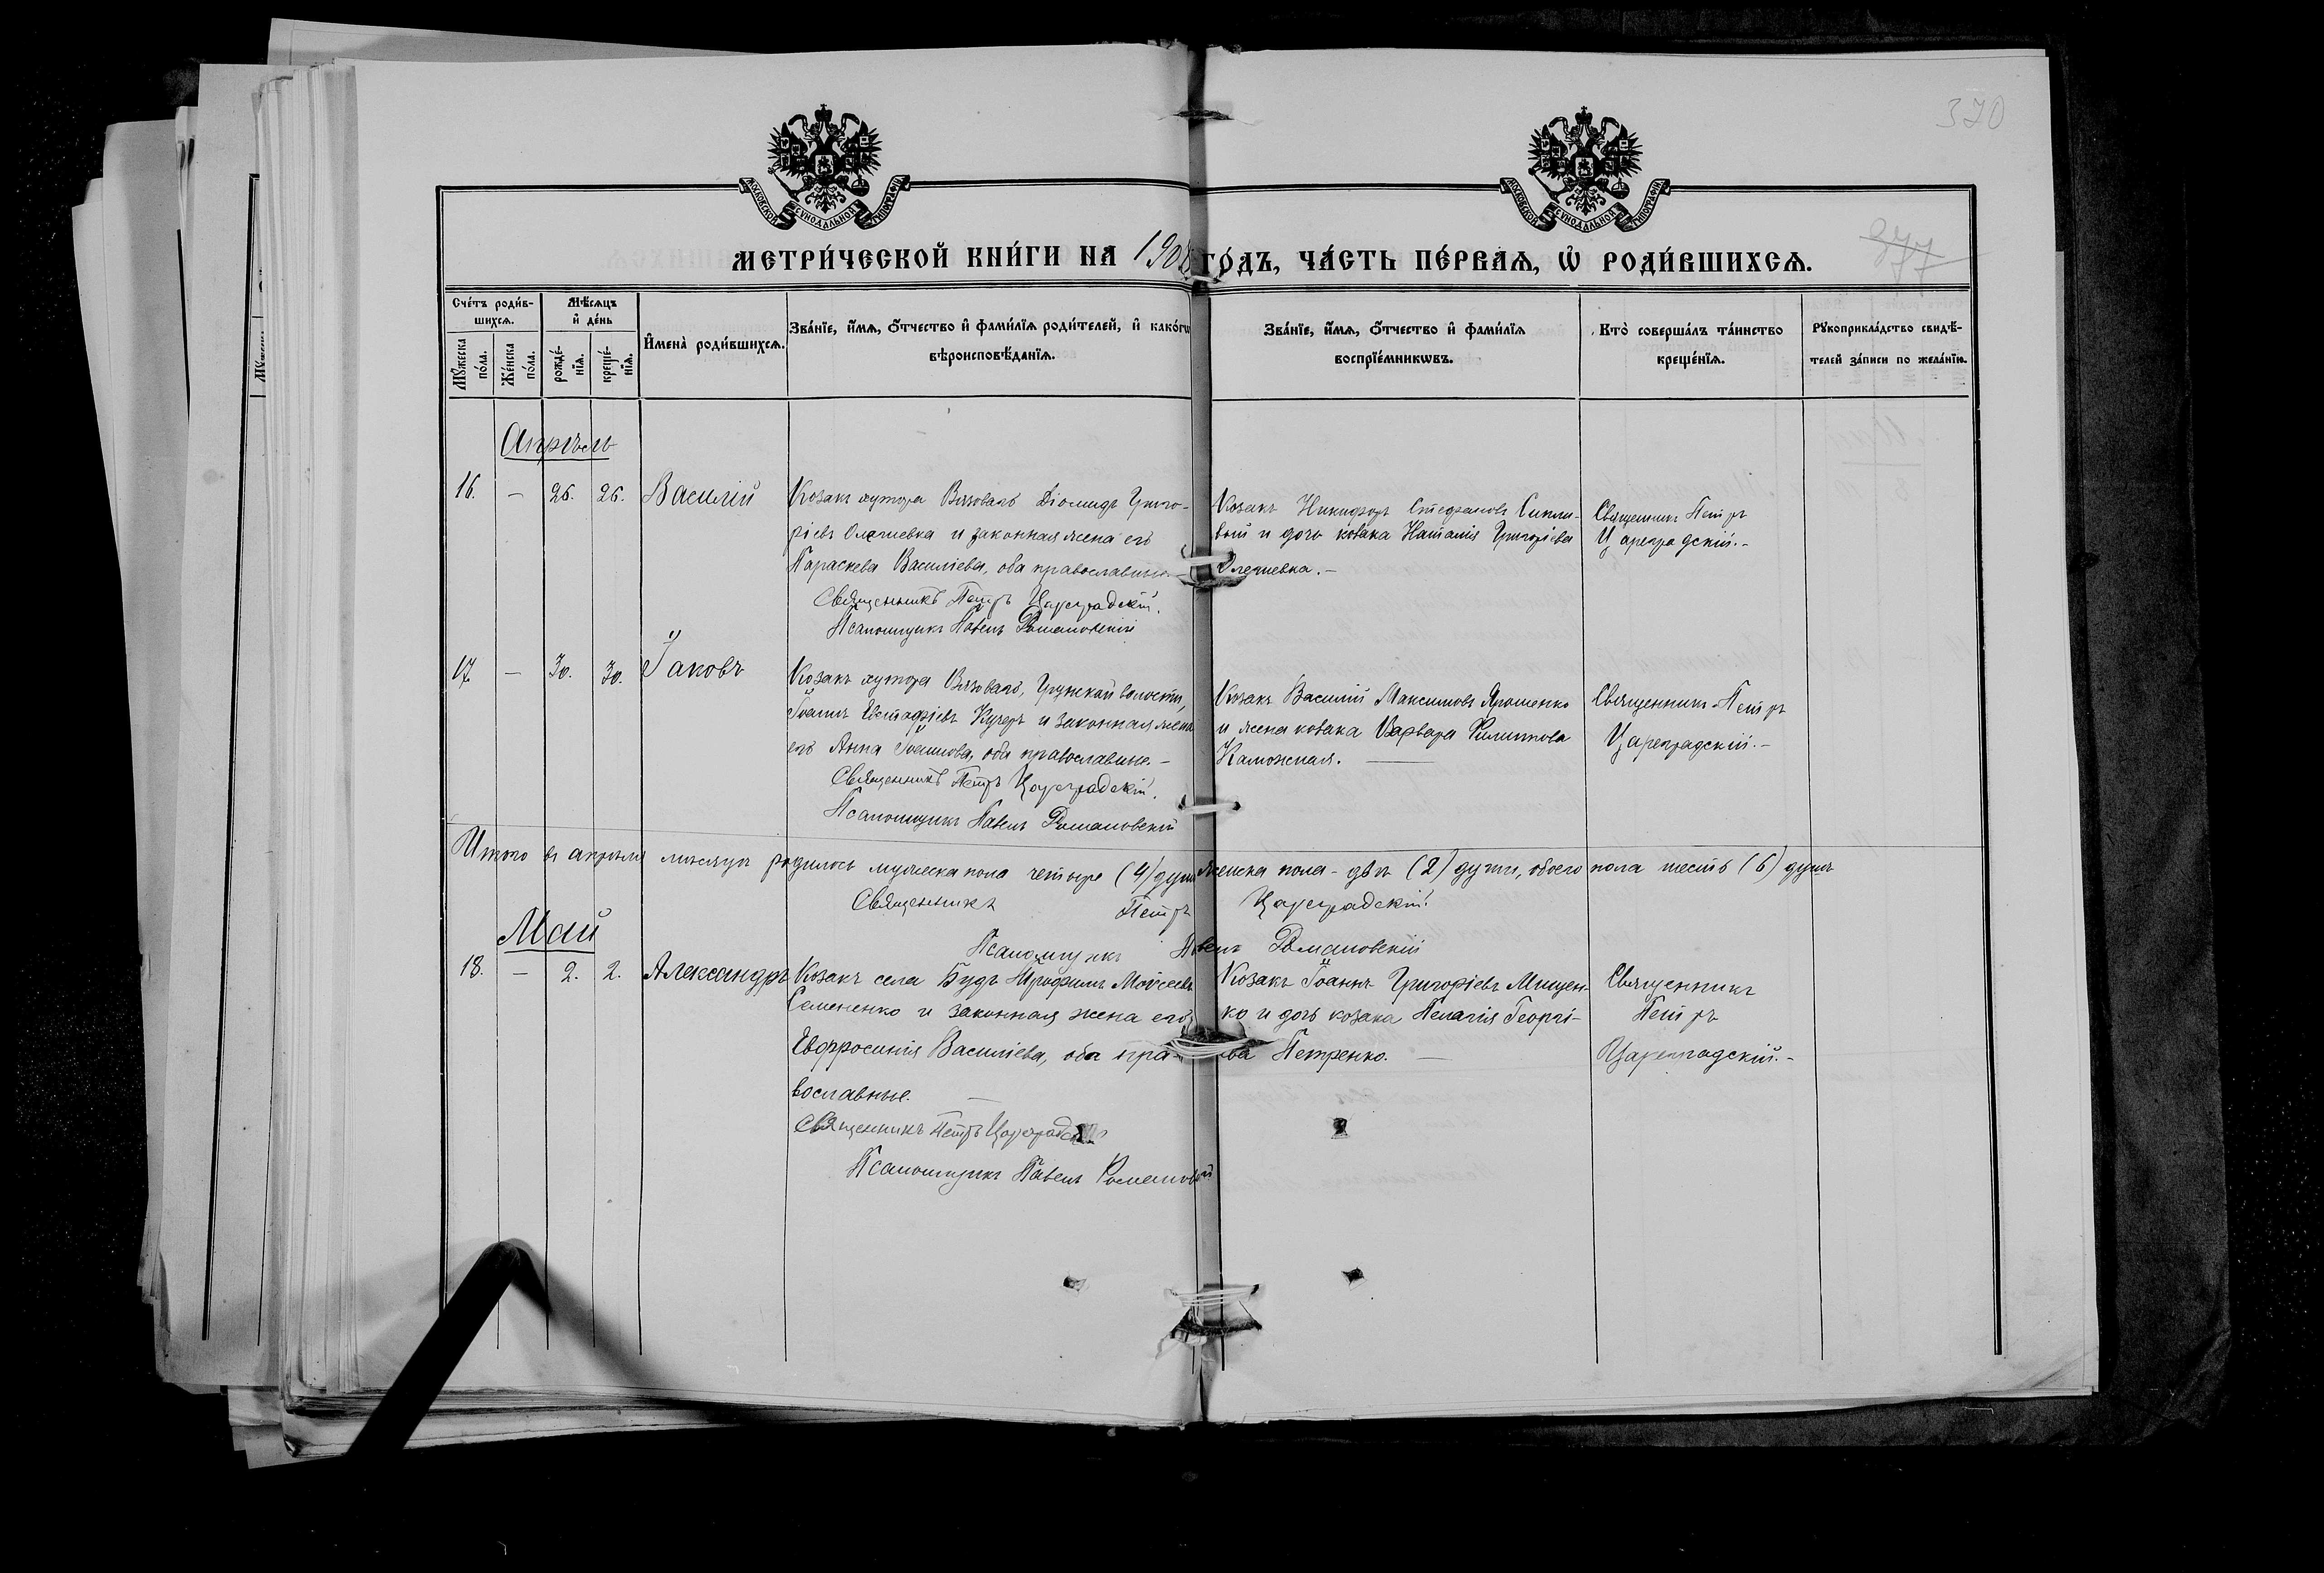 370
377
МОСКОВСКОЙ СУНОДАЛЬНОЙ ТИПОГРАФІИ
МОСКОВСКОЙ СУНОДАЛЬНОЙ ТИПОГРАФІИ
МЕТРИ́ЧЕСКОЙ КНИ́ГИ НА 1908 ГО́ДЪ, ЧА́СТЬ ПЕ́РВАѦ, Ѡ҆ РОДИ́ВШИХСѦ.
Сче́тъ роди́в-
шихсѧ.
Мꙋ́жеска по́ла.
Же́нска по́ла.
Мѣ́сѧцъ
и҆ де́нь
рожде́-
нїѧ.
креще́-
нїѧ.
И҆мена̀ роди́вшихсѧ.
Зва́нїе, и҆́мѧ, ѻ҆́тчество и҆ фами́лїѧ роди́телей, и҆ како́гѡ
вѣроисповѣ́данїѧ.
Зва́нїе, и҆́мѧ, ѻ҆́тчество и҆ фами́лїѧ
воспрїе́мникѡвъ.
Кто̀ соверша́лъ та́инство
креще́нїѧ.
Рꙋкоприкла́дство свидѣ́-
телей за́писи по жела́нїю.
Апрѣль
16. — 26. 26. Василій
Козакъ хутора Вязоваго Діомидъ Григо-
ріевъ Олешевка и законная жена его
Параскева Василіева, оба православные. —
Священникъ Петръ Цареградскій.
Псаломщикъ Павелъ Романовскій
Козакъ Никифоръ Стефановъ
и дочь козака Наталія Григоріева
Олешевка. —
Священникъ Петръ
Цареградскій. –
17. — 30. 30. Іаковъ
Козакъ хутора Вязоваго, Грунской волости,
Іоаннъ Евстафіевъ Кучеръ и законная жена
его Анна Іоаннова, оба православные. —
Священникъ Петръ Цареградскій.
Псаломщикъ Павелъ Романовскій
Козакъ Василій Максимовъ Ярошенко
и жена козака Варвара Филиппова
Священникъ Петръ
Цареградскій. –
Итого въ апрѣлѣ мѣсяцѣ родилось мужеска пола четыре (4) души женска пола – двѣ (2) души, обоего пола шесть (6) душъ
Священникъ Петръ Цареградскій.
Псаломщикъ Павелъ Романовскій
Май
18. — 2. 2. Александръ
Козакъ села Будъ Трофимъ Мойсеевъ
Семененко и законная жена его
Евфросинія Василіева, оба пра-
вославные. —
Священникъ Петръ Цареградскій
Псаломщикъ Павелъ Романовскій
Козакъ Іоаннъ Григоріевъ Мищен-
ко и дочь козака Пелагія Георгі-
ева Петренко. —
Священникъ
Петръ
Цареградскій. –